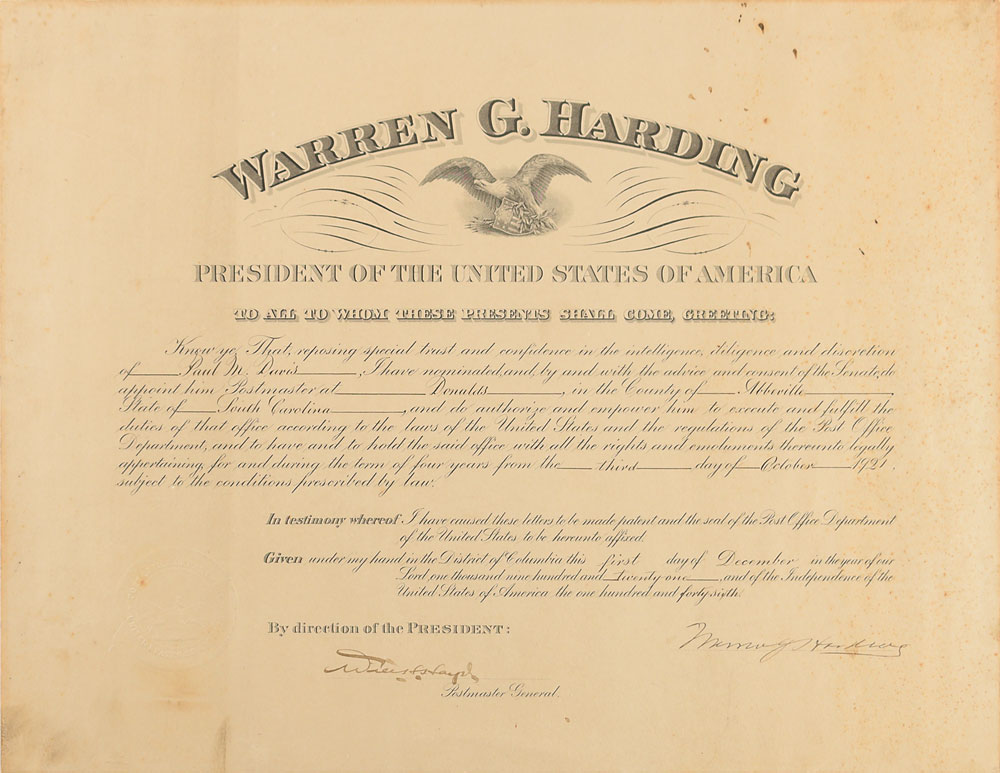 WARREN G. HARDING
PRESIDENT OF THE UNITED STATES OF AMERICA
TO ALL TO WHOM THESE PRESENTS SHALL COME, GREETING:
Know ye, That, reposing special trust and confidence in the intelligence, diligence and discretion
of Paul M. Davis, I have nominated, and, by and with the advice and consent of the Senate, do
appoint him Postmaster at Donalds, in the County of Abbeville,
State of South Carolina, and do authorize and empower him to execute and fulfill the
duties of that office according to the laws of the United States and the regulations of the Post Office
Department, and to have and to hold the said office with all the rights and emoluments thereunto legally
appertaining, for and during the term of four years from the third day of October 1921,
subject to the conditions prescribed by law.
In testimony whereof I have caused these letters to be made patent and the seal of the Post Office Department
of the United States to be hereunto affixed.
Given under my hand in the District of Columbia this first day of December in the year of our
Lord, one thousand nine hundred and twenty one, and of the Independence of the
United States of America the one hundred and forty sixth.
By direction of the PRESIDENT:
Warren G Harding
Will H Hays
Postmaster General.